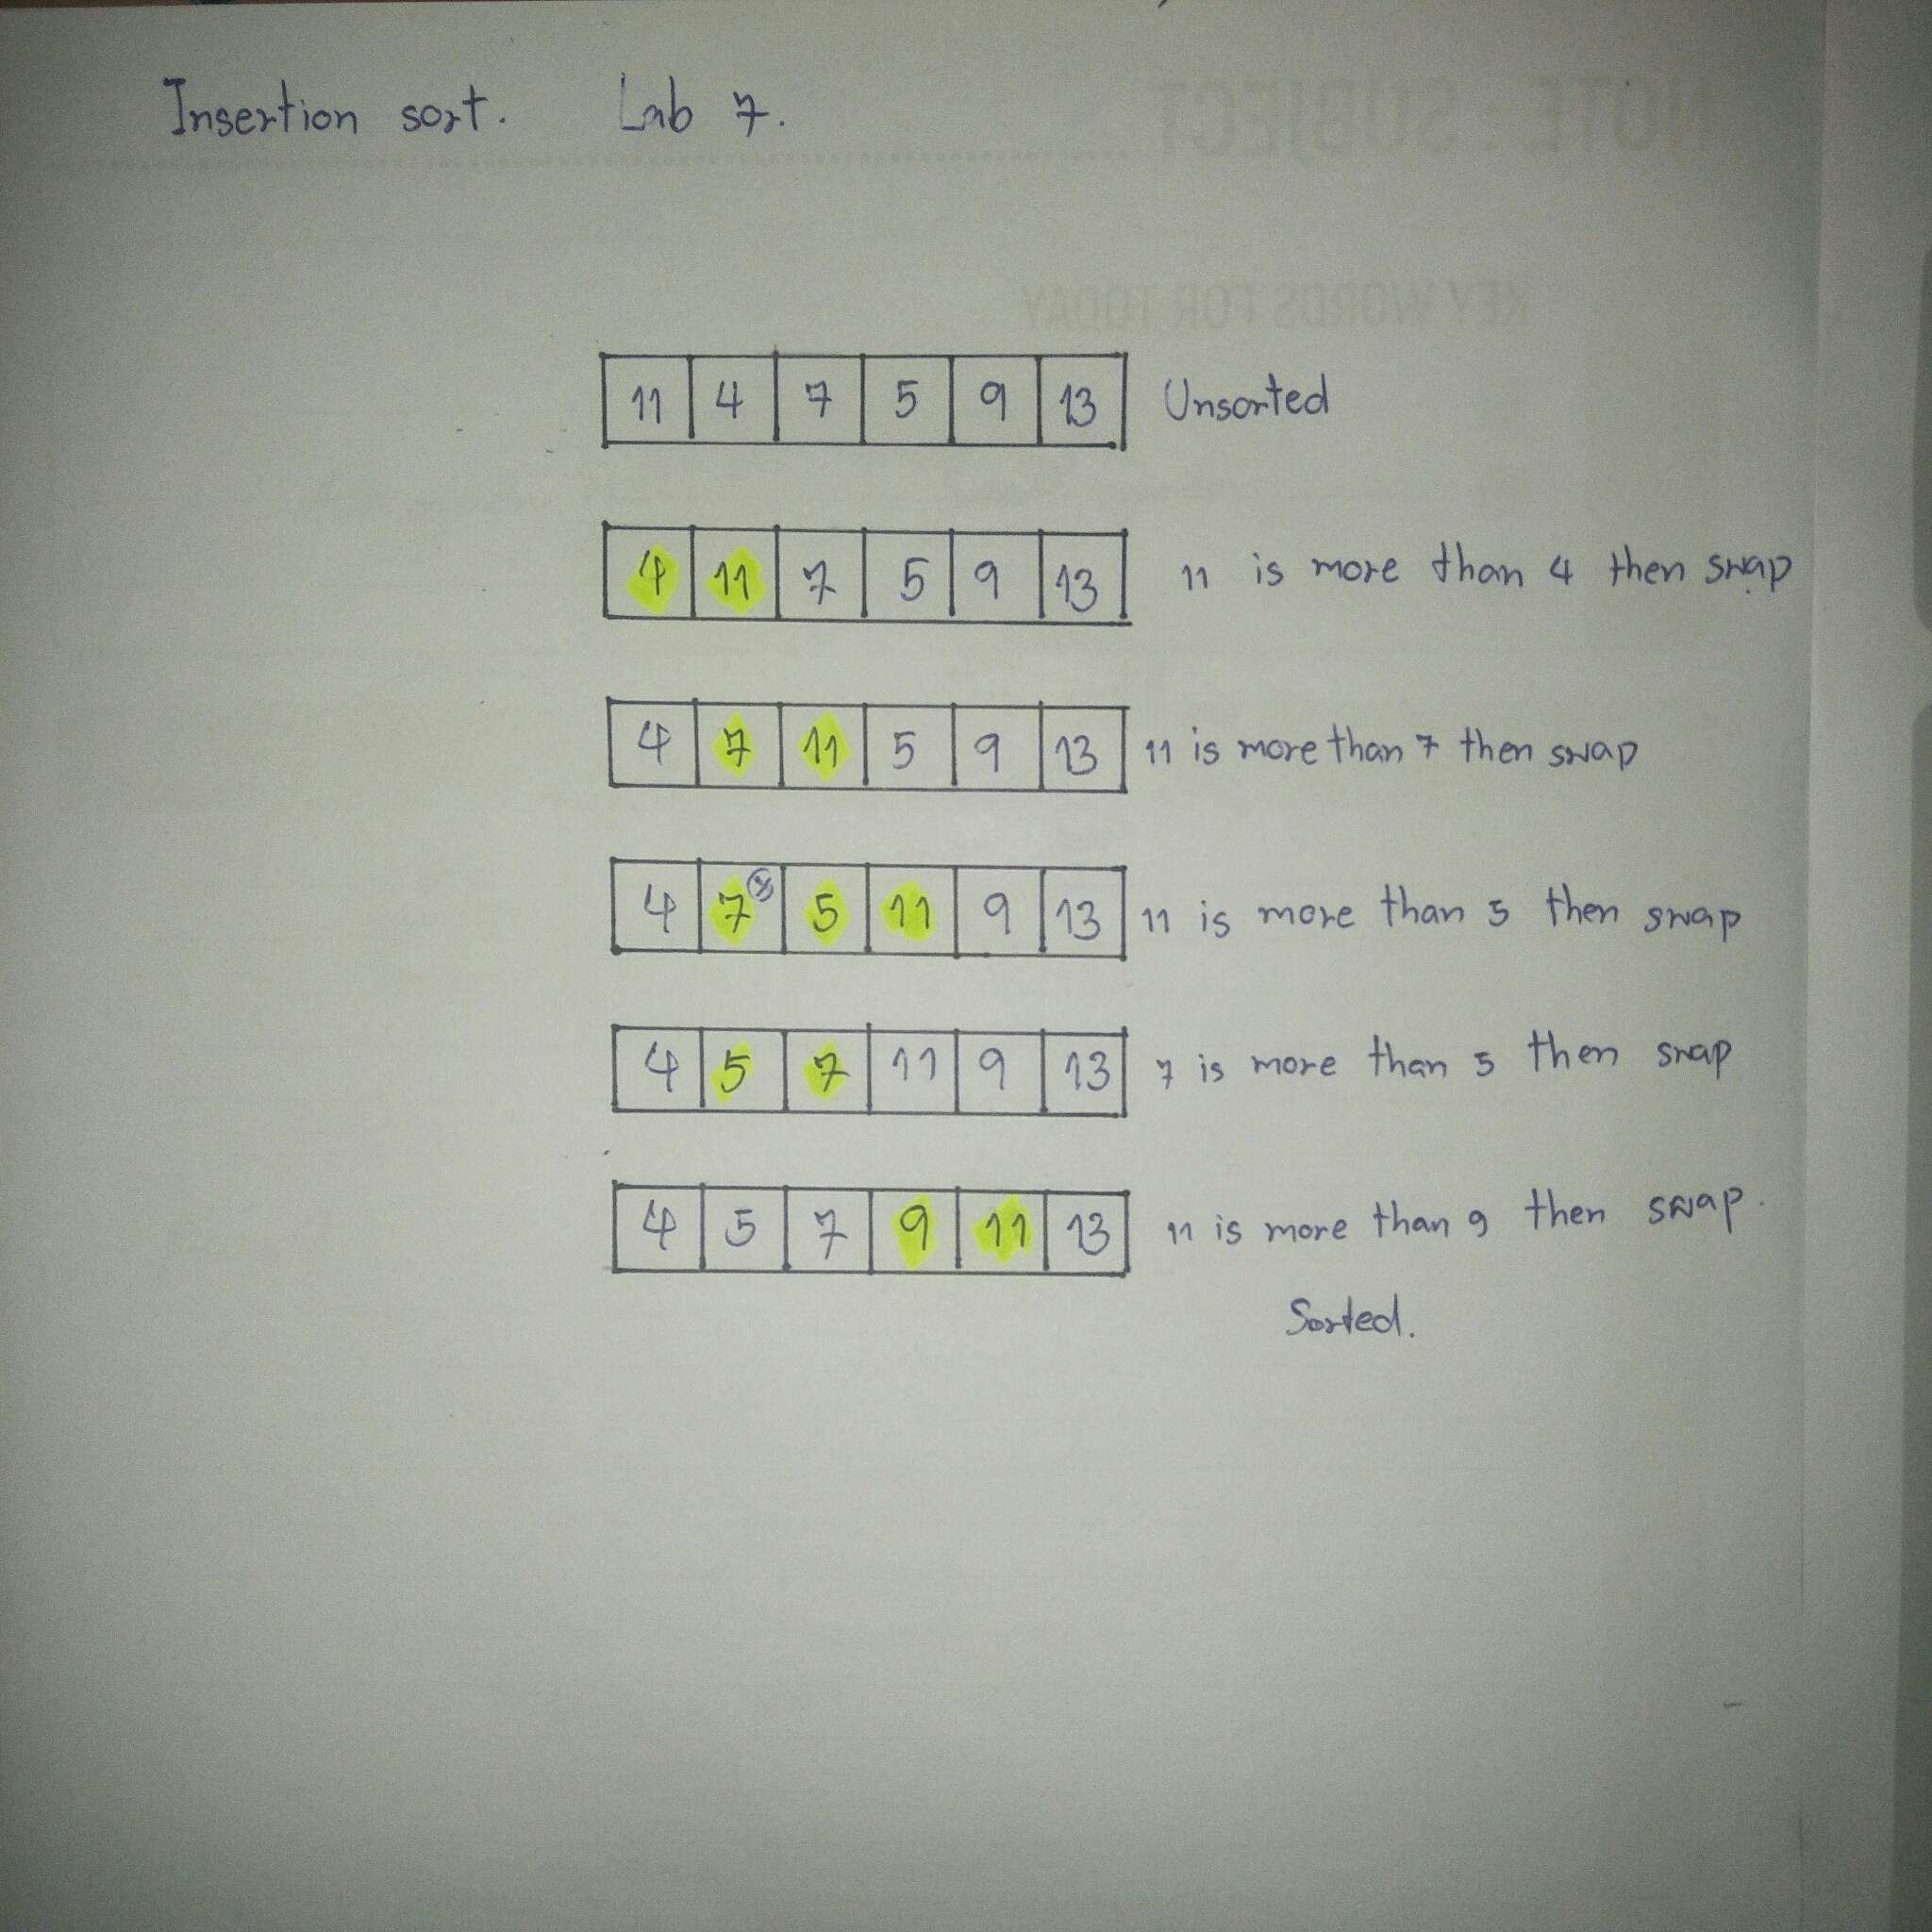 Insertion sort. Lab 7.
NOTE : SUBJECT
KEY WORDS FOR TODAY
11 4 7 5 9 13 Unsorted
4 11 7 5 9 13 11 is more than 4 then swap
4 7 11 5 9 13 11 is more than 7 then swap
4 7 5 11 9 13 11 is more than 5 then swap
4 5 7 11 9 13 7 is more than 5 then swap
4 5 7 9 11 13 11 is more than 9 then swap.
Sorted.